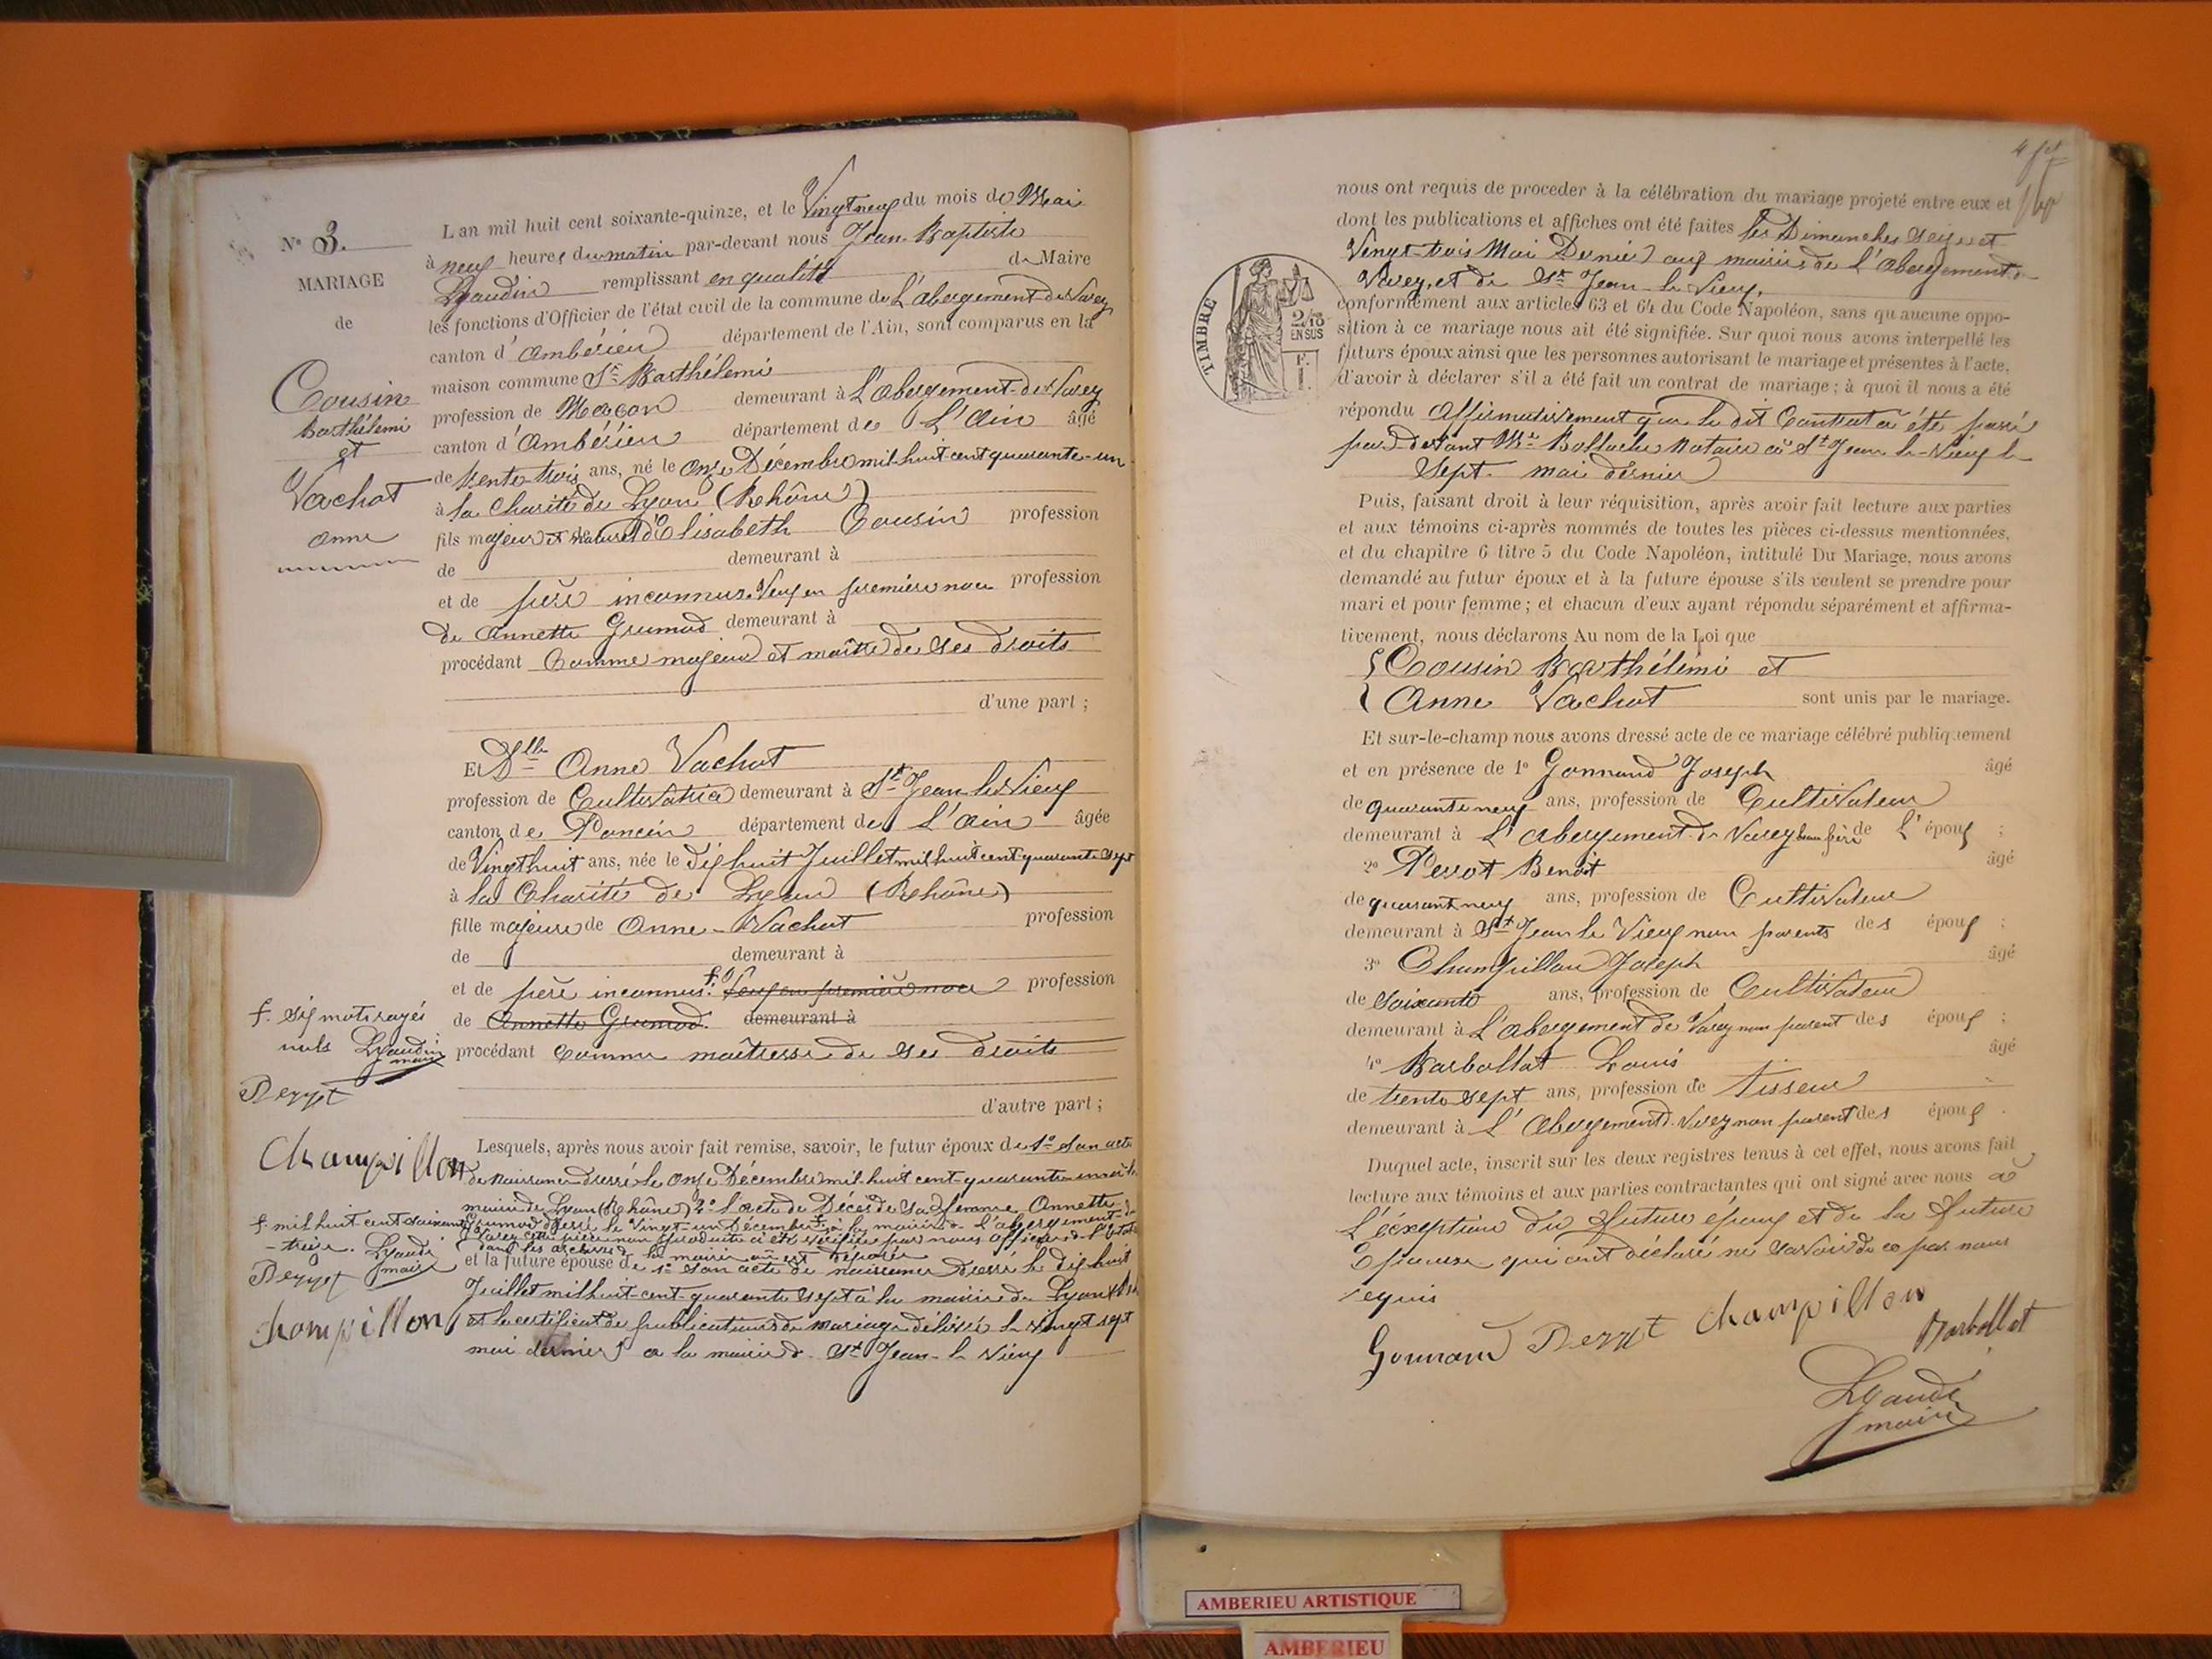 N° 3.
MARIAGE
de
Cousin
Barthélemi
et
Vachot
anne
L'an mil huit cent soixante-quinze, et le Vingt neuf du mois de Mai
à neuf heures du matin par-devant nous Jean-Baptiste
Lyaudin remplissant en qualité de Maire
les fonctions d'Officier de l'état civil de la commune de L'abergement-de-Varey
canton d'Ambérieu département de l'Ain, sont comparus en la
maison commune Sr Barthélemi
profession de Maçon demeurant à L'abergement-de-Varey
canton d'Ambérieu département de L'Ain âgé
de trente-trois ans, né le onze Décembre mil huit cent quarante-un
à la Charité de Lyon (Rhône)
fils majeur et naturel d'Elisabeth Cousin profession
de demeurant à
et de père inconnus. Veuf en première noce profession
de Annette Grumod demeurant à
procédant Comme majeur et maître de ses droits
d'une part ;
Et Dlle Anne Vachot
profession de Cultivatrice demeurant à St Jean-le-Vieux
canton de Poncin département de L'Ain âgée
de Vingt huit ans, née le dix huit Juillet mil huit cent quarante sept
à la Charité de Lyon (Rhône)
fille majeure de Anne Vachot profession
de demeurant à
et de père inconnus. Veuf en première noce profession
de Annette Grumod. demeurant à
procédant Comme maîtresse de ses droits
d'autre part ;
f. six mots rayés
nuls Lyaudin
maire
Champillon
Lesquels, après nous avoir fait remise, savoir, le futur époux de 1° son acte
de naissance dressé le onze Décembre mil huit cent quarante un à la
mairie de Lyon (Rhône) 2° l'acte de Décès de sa femme Annette
Grumod dressé le Vingt-un Décembre f à la mairie de l'abergement-de
Varey cette pièce non produite a été vérifiée par nous officier de l'état
dans les archives de la mairie où est déposée
et la future épouse de 1° son acte de naissance dressé le dix huit
Juillet mil huit-cent-quarante sept à la mairie de Lyon
et le certificat de publications de mariage délivré le vingt sept
mai dernier à la mairie de St Jean-le Vieux
f. mil huit cent soixante
-treize. Lyaudi
maire
Champillon
TIMBRE
2/10
EN SUS
nous ont requis de proceder à la célébration du mariage projeté entre eux et
dont les publications et affiches ont été faites les Dimanches seize et
Vingt-trois Mai Dernier aux mairies de L'abergement-de
Varey, et de St Jean-le Vieux,
conformément aux articles 63 et 64 du Code Napoléon, sans qu'aucune oppo-
sition à ce mariage nous ait été signifiée. Sur quoi nous avons interpellé les
futurs époux ainsi que les personnes autorisant le mariage et présentes à l'acte,
d'avoir à déclarer s'il a été fait un contrat de mariage ; à quoi il nous a été
répondu affirmativement que le dit Contrat a été passé
par devant Me Notaire à St Jean-le-Vieux le
Sept mai dernier
Puis, faisant droit à leur réquisition, après avoir fait lecture aux parties
et aux témoins ci-après nommés de toutes les pièces ci-dessus mentionnées,
et du chapitre 6 titre 5 du Code Napoléon, intitulé Du Mariage, nous avons
demandé au futur époux et à la future épouse s'ils veulent se prendre pour
mari et pour femme ; et chacun d'eux ayant répondu séparément et affirma-
tivement, nous déclarons Au nom de la Loi que
Cousin Barthélemi et
Anne Vachot sont unis par le mariage.
Et sur-le-champ nous avons dressé acte de ce mariage célébré publiquement
et en présence de 1° Gonnand Joseph âgé
de quarante neuf ans, profession de Cultivateur
demeurant à L'abergement-de Varey beau frère de L'époux ;
2° Perrot Benoit âgé
de quarant neuf ans, profession de Cultivateur
demeurant à St Jean le Vieux non parents des époux ;
3° Champillon Joseph âgé
de soixante ans, profession de Cultivateur
demeurant à L'abergement de Varey non parent des époux ;
4° Barbollat Louis âgé
de trente sept ans, profession de tisseur
demeurant à L'abergement d. Varey non parent des époux.
Duquel acte, inscrit sur les deux registres tenus à cet effet, nous avons fait
lecture aux témoins et aux parties contractantes qui ont signé avec nous à
L'exception du futur époux et de la future
Epouse qui ont déclaré ne savoir de ce par nous
requis
Gonnand Champillon
Barbollat
Lyaudi
maire
AMBERIEU ARTISTIQUE
AMBERIEU